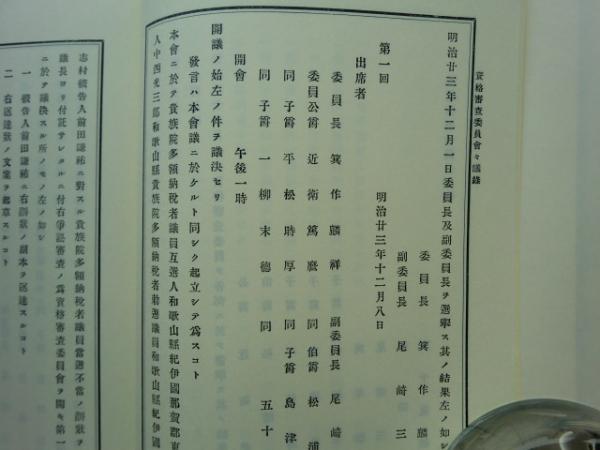 資格審査委員會々議錄
明治廿三年十二月一日委員長及副委員長ヲ選擧ス其ノ結果左ノ如シ
委員長 箕作麟
副委員長 尾崎三
明治廿三年十二月八日
第一回
出席者
委員長 箕作麟祥 副委員長 尾崎
委員公爵 近衛篤麿 同伯爵 松浦
同子爵 平松時厚 同子爵 島津
同子爵 一柳末德 同 五十
開會 午後一時
開議ノ始左ノ件ヲ議決セリ
發言ハ本會議ニ於ケルト同シク起立シテ爲スコト
本會ニ於テ貴族院多額納稅者議員互選人和歌山縣紀伊國那賀郡東
人中西光三郎和歌山縣貴族院多額納稅者勅選議員和歌山縣紀伊國
志村被告人前田謙祐ニ對スル貴族院多額納稅者議員當選不當ノ訴狀ヲ
議長ヨリ付託サレタルニ付右爭訟審査ノ爲資格審査委員會ヲ開キ第一
ニ於テ議決スル所ノモノ左ノ如シ
一 被告人前田謙祐ニ右訴狀ノ副本ヲ送達スルコト
二 右送達狀ノ文案ヲ起草スルコト